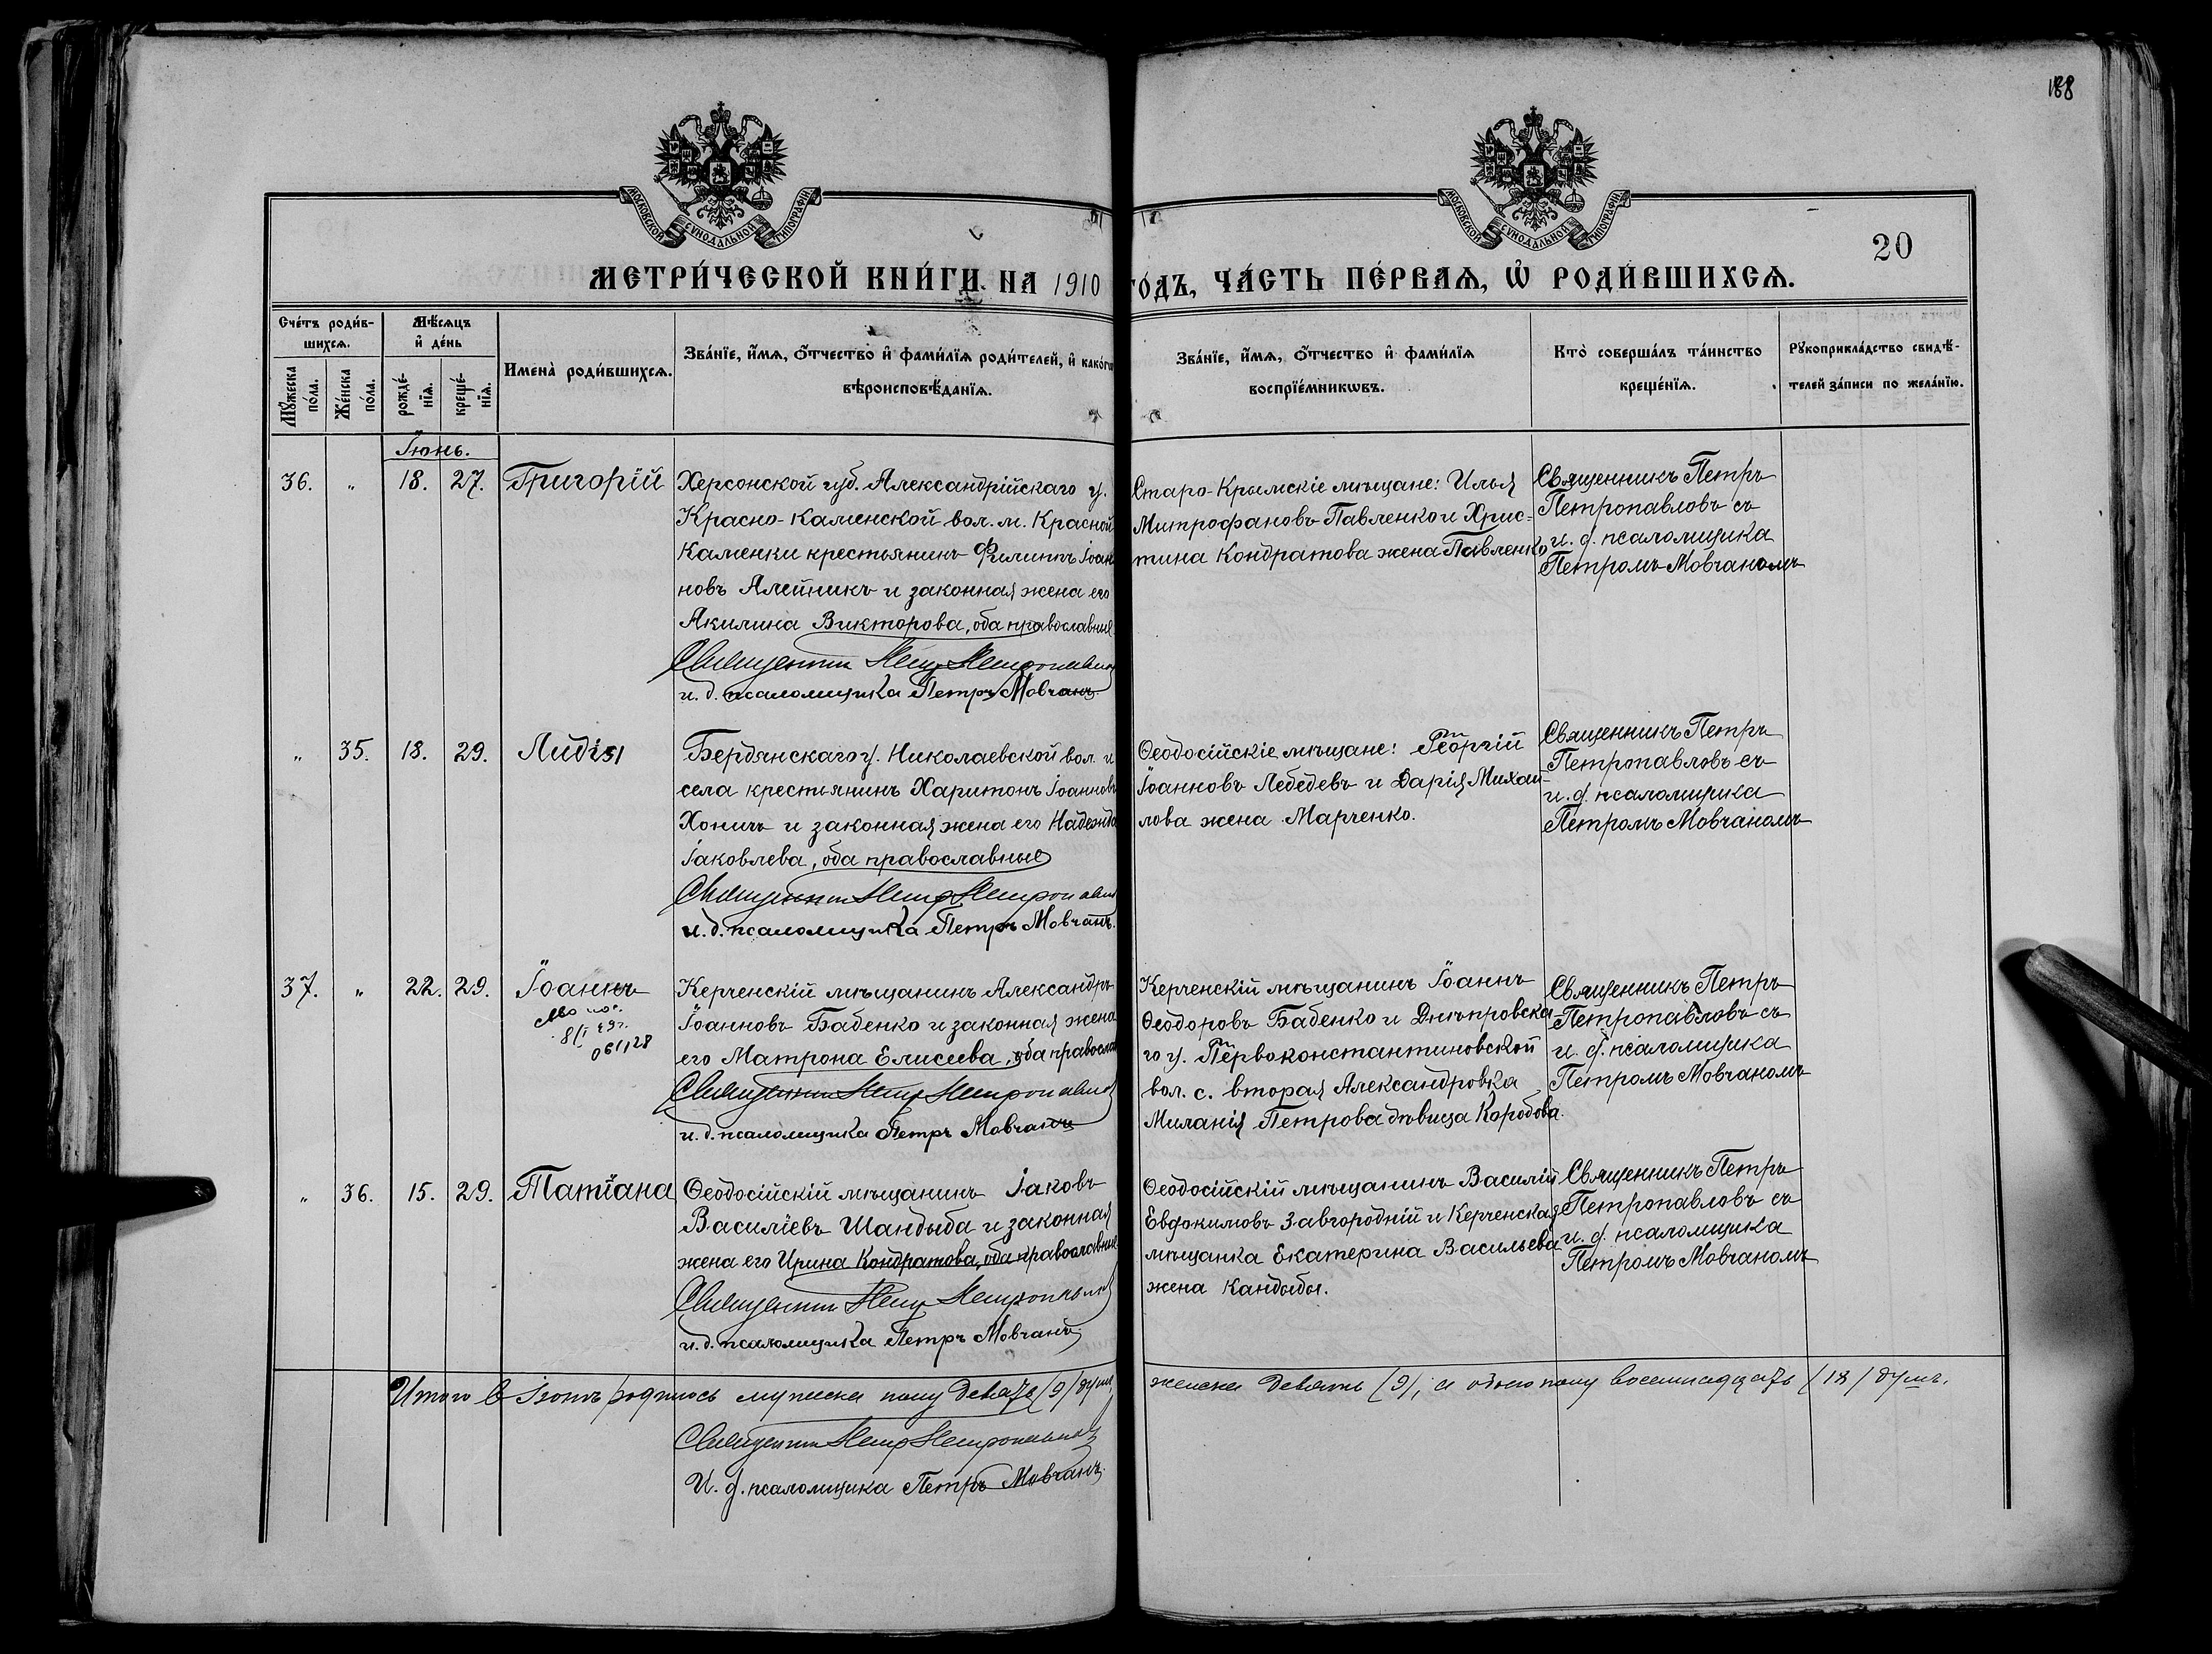 188
МОСКОВСКОЙ СѴНОДАЛЬНОЙ ТИПОГРАФІИ
МОСКОВСКОЙ СѴНОДАЛЬНОЙ ТИПОГРАФІИ
20
МЕТРИ́ЧЕСКОЙ КНИ́ГИ НА 1910 ГО́ДЪ, ЧА́СТЬ ПЕ́РВАѦ, Ѡ РОДИ́ВШИХСѦ.
Сче́тъ роди́в-
шихсѧ.
Мꙋ́жеска по́ла.
Же́нска по́ла.
Мѣ́сѧцъ
и҆ де́нь
рожде́-
нїѧ.
креще́-
нїѧ.
Имена̀ роди́вшихсѧ.
Зва́нїе, и҆́мѧ, ѻ҆́тчество и҆ фами́лїѧ роди́телей, и҆ како́гѡ
вѣроисповѣ́данїѧ.
Зва́нїе, и҆́мѧ, ѻ҆́тчество и҆ фами́лїѧ
воспрїе́мникѡвъ.
Кто̀ соверша́лъ та́инство
креще́нїѧ.
Рꙋкоприкла́дство свидѣ́-
телей за́писи по жела́нїю.
Іюнь.
36. „ 18. 27. Григорій
Херсонской губ. Александрійскаго у.
Красно-Каменской вол. м. Красной
Каменки крестьянинъ Филиппъ Іоан
новъ Алейникъ и законная жена его
Акилина Викторова, оба православные
Священникъ Петръ Петропавловъ
и. д. псаломщика Петръ Мовчанъ
Старо-Крымскіе мѣщане: Илья
Митрофановъ Павленко и Хрис-
тина Кондратова жена Павленко
Священникъ Петръ
Петропавловъ съ
и. д. псаломщика
Петромъ Мовчаномъ
„ 35. 18. 29. Лидія
Бердянскаго у. Николаевской вол. и
села крестьянинъ Харитонъ Іоанновъ
Хоничъ и законная жена его Надежда
Іаковлева, оба православные
Священникъ Петръ Петропавловъ
и. д. псаломщика Петръ Мовчанъ.
Ѳеодосійскіе мѣщане: Георгій
Іоанновъ Лебедевъ и Дарія Михаи-
лова жена Марченко.
Священникъ Петръ
Петропавловъ съ
и. д. псаломщика
Петромъ Мовчаномъ
37. „ 22. 29. Іоаннъ
8/I 49г.
061128
Керченскій мѣщанинъ Александръ
Іоанновъ Бабенко и законная жена
его Матрона Елисеева, оба православ
Священникъ Петръ Петропавловъ
и. д. псаломщика Петръ Мовчанъ
Керченскій мѣщанинъ Іоаннъ
Ѳеодоровъ Бабенко и Днѣпровска-
го у. Первоконстантиновской
вол. с. вторая Александровка
Миланія Петрова дѣвица Коробова.
Священникъ Петръ
Петропавловъ съ
и. д. псаломщика
Петромъ Мовчаномъ
„ 36. 15. 29. Татіана
Ѳеодосійскій мѣщанинъ Іаковъ
Василіевъ Шандыба и законная
жена его Ирина Кондратова, оба православные
Священникъ Петръ Петропавловъ
и. д. псаломщика Петръ Мовчанъ
Ѳеодосійскій мѣщанинъ Василій
Евдокимовъ Завгородній и Керченская
мѣщанка Екатерина Васильева
жена Кандыбы.
Священникъ Петръ
Петропавловъ съ
и. д. псаломщика
Петромъ Мовчаномъ
Итого в Іюнѣ родилось мужеска полу девять (9) душъ, женска девять (9), а обоего полу восемнадцать (18) душъ.
Священникъ Петръ Петропавловъ
И. д. псаломщика Петръ Мовчанъ.